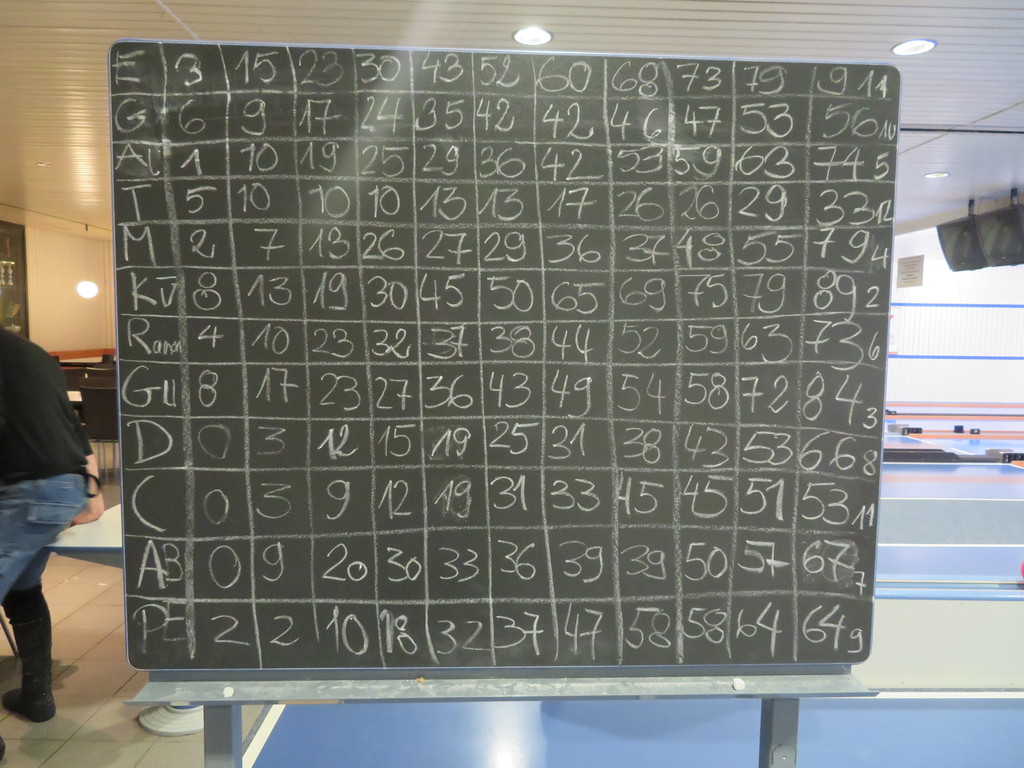 E 3 15 23 30 43 52 60 68 73 79 91 1
G 6 9 17 24 35 42 42 46 47 53 56 10
AL 1 10 19 25 29 36 42 53 59 63 74 5
T 5 10 10 10 13 13 17 26 26 29 33 12
M 2 7 13 26 27 29 36 37 48 55 79 4
KÜ 8 13 19 30 45 50 65 69 75 79 89 2
4 10 23 32 37 38 44 52 59 63 73 6
GU 8 17 23 27 36 43 49 54 58 72 84 3
D 0 3 12 15 19 25 31 38 43 53 66 8
C 0 3 9 12 19 31 33 45 45 51 53 11
AB 0 9 20 30 33 36 39 39 50 57 67 7
PE 2 2 10 18 32 37 47 58 58 64 64 9